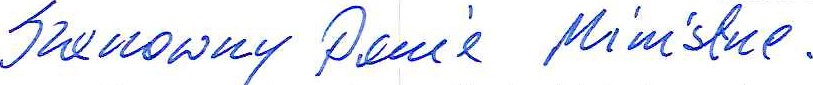 Szanowny Panie Ministrze.